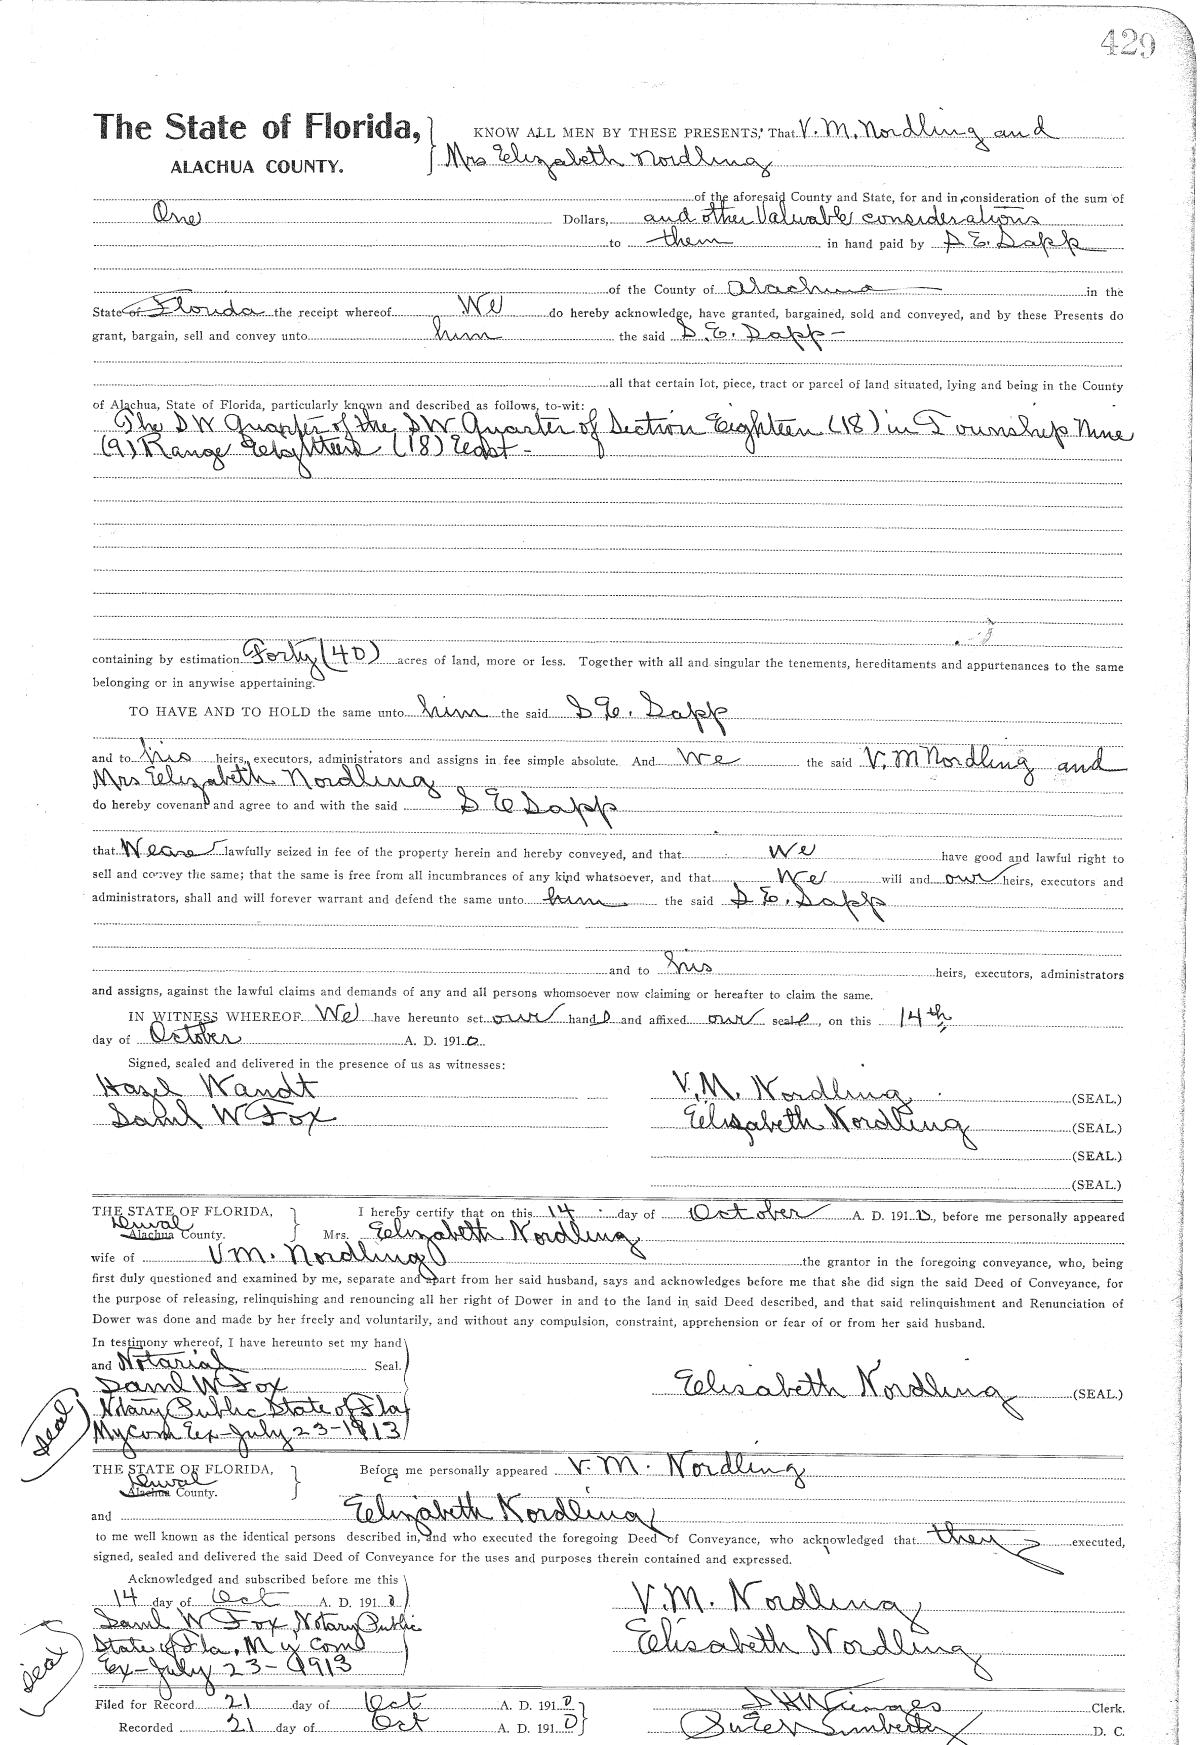 429
The State of Florida, KNOW ALL MEN BY THESE PRESENTS, That V. M. Nordling and
ALACHUA COUNTY. Mrs Elizabeth Nordling
of the aforesaid County and State, for and in consideration of the sum of
One Dollars, and other Valuable considerations
to them in hand paid by S E. Sapp
of the County of Alachua in the
State of Florida the receipt whereof We do hereby acknowledge, have granted, bargained, sold and conveyed, and by these Presents do
grant, bargain, sell and convey unto him the said S. E. Sapp -
all that certain lot, piece, tract or parcel of land situated, lying and being in the County
of Alachua, State of Florida, particularly known and described as follows, to-wit:
The SW Quarter of the SW Quarter of Section Eighteen (18) in Township Nine
(9) Range Eighteen (18) East -
containing by estimation Forty (40) acres of land, more or less. Together with all and singular the tenements, hereditaments and appurtenances to the same
belonging or in anywise appertaining.
TO HAVE AND TO HOLD the same unto him the said S E. Sapp
and to his heirs, executors, administrators and assigns in fee simple absolute. And We the said V. M Nordling and
Mrs Elizabeth Nordling
do hereby covenant and agree to and with the said S E Sapp
that We are lawfully seized in fee of the property herein and hereby conveyed, and that We have good and lawful right to
sell and convey the same; that the same is free from all incumbrances of any kind whatsoever, and that We will and our heirs, executors and
administrators, shall and will forever warrant and defend the same unto him the said S E. Sapp
and to his heirs, executors, administrators
and assigns, against the lawful claims and demands of any and all persons whomsoever now claiming or hereafter to claim the same.
IN WITNESS WHEREOF We have hereunto set our hands and affixed our seals, on this 14th
day of October A. D. 1910.
Signed, sealed and delivered in the presence of us as witnesses:
Hazel Wandt V. M. Nordling (SEAL.)
Saml W Fox Elisabeth Nordling (SEAL.)
(SEAL.)
(SEAL.)
THE STATE OF FLORIDA, I hereby certify that on this 14 day of October A. D. 1910, before me personally appeared
Duval
Alachua County. Mrs. Elizabeth Nordling
wife of V M. Nordling the grantor in the foregoing conveyance, who, being
first duly questioned and examined by me, separate and apart from her said husband, says and acknowledges before me that she did sign the said Deed of Conveyance, for
the purpose of releasing, relinquishing and renouncing all her right of Dower in and to the land in said Deed described, and that said relinquishment and Renunciation of
Dower was done and made by her freely and voluntarily, and without any compulsion, constraint, apprehension or fear of or from her said husband.
In testimony whereof, I have hereunto set my hand
and Notarial Seal.
Saml W Fox Elisabeth Nordling (SEAL.)
Notary Public State of Fla
My Com Ex - July 23 - 1913
seal
THE STATE OF FLORIDA, Before me personally appeared V. M. Nordling
Duval
Alachua County.
and Elizabeth Nordling
to me well known as the identical persons described in, and who executed the foregoing Deed of Conveyance, who acknowledged that they executed,
signed, sealed and delivered the said Deed of Conveyance for the uses and purposes therein contained and expressed.
Acknowledged and subscribed before me this
14 day of Oct A. D. 1910 V. M. Nordling
Saml W Fox, Notary Public
State of Fla, My Com Elisabeth Nordling
Ex - July 23 - 1913
seal
Filed for Record 21 day of Oct A. D. 1910 Clerk.
Recorded 21 day of Oct A. D. 1910 D. C.